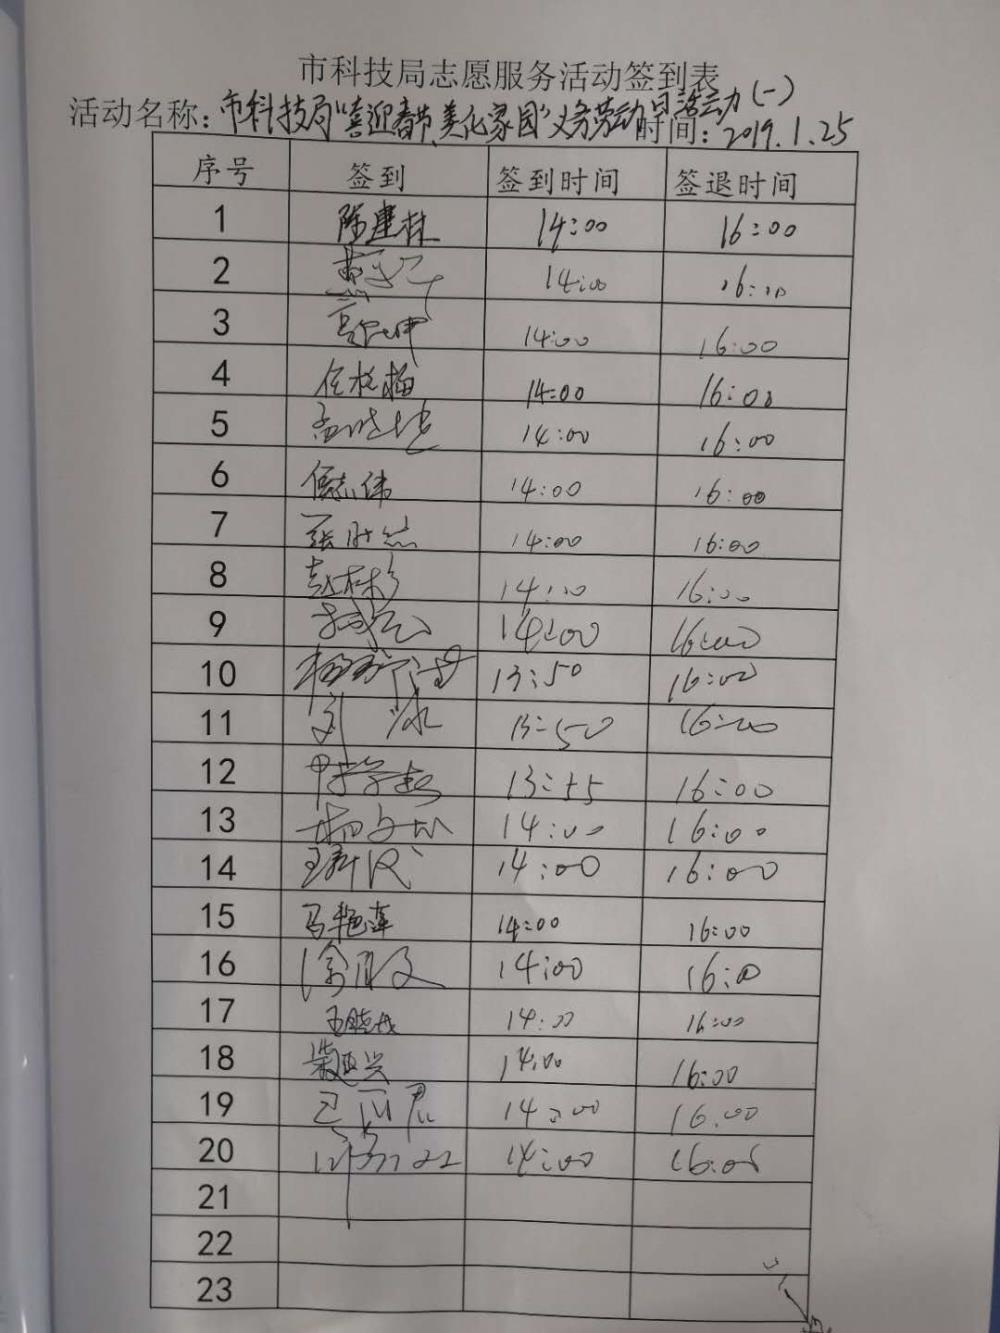 市科技局志愿服务活动签到表
活动名称：市科技局"喜迎春节、美化家园"义务劳动日活动(一)
时间：2019.1.25
序号 签到 签到时间 签退时间
1 陈建林 14:00 16:00
2 14:00 16:00
3 14:00 16:00
4 任桂梅 14:00 16:00
5 14:00 16:00
6 侯志伟 14:00 16:00
7 14:00 16:00
8 14:00 16:00
9 14:00 16:00
10 13:50 16:00
11 刘冰 13:50 16:00
12 13:55 16:00
13 14:00 16:00
14 14:00 16:00
15 马艳萍 14:00 16:00
16 14:00 16:00
17 14:00 16:00
18 柴亚兴 14:00 16:00
19 14:00 16.00
20 14:00 16:00
21
22
23